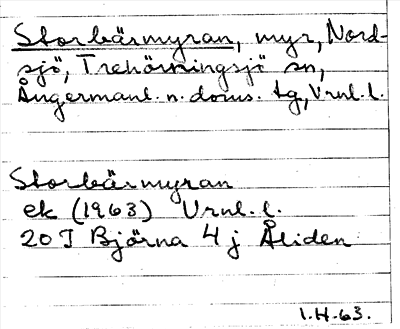 Storbärmyran, myr, Nord-
sjö, Trehörningsjö sn,
Ångermanl. n. doms. tg, Vrnl. l.
Storbärmyran
ek (1963) Vrnl. l.
20 I Björna 4 j Åliden
I.H. 63.